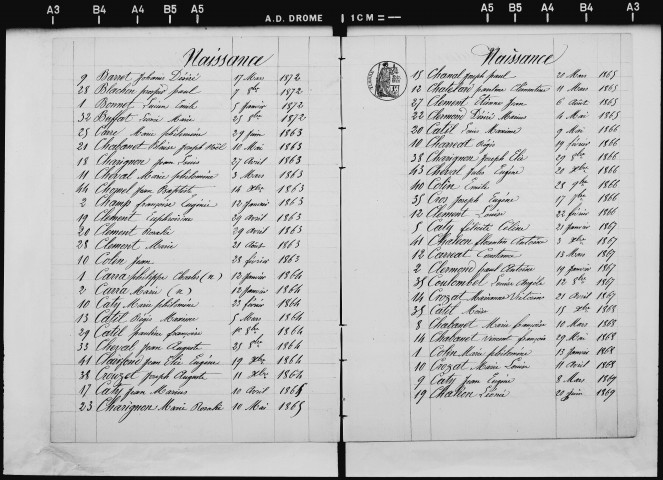 A3 B4 A4 B5 A5 A.D. DROME 1CM A5 B5 A4 B4 A3
Naissance
9 Barret Johanis Désiré 17 Mars 1872
28 Blachon prosper paul 7 8bre 1872
1 Bonnet Lucien Emile 5 Janvier 1872
32 Buffat Marie 25 8bre 1872
25 Carre Marie philomène 29 Juin 1863
21 Chafanet joseph Noël 10 Mai 1863
18 Charignon jean Louis 27 Avril 1863
11 Chaval Marie philomène 3 Mars 1863
44 Chomel Jean Baptiste 14 Xbre 1863
2 Champ françoise Eugénie 12 Janvier 1863
19 Clement Euphrosine 29 avril 1863
20 Clement Rosalie 29 avril 1863
28 Clement Marie 21 Aout 1863
10 Colin Jean 28 février 1863
1 Carra philippe Charles (n) 12 Janvier 1864
2 Carra Marie (n) 12 Janvier 1864
10 Caty Marie philomène 23 février 1864
13 Catil Régis Marion 5 Mars 1864
29 Catil françoise 10 8bre 1864
33 Cheval Jean Auguste 21 8bre 1864
41 jean Elie Eugène 19 Xbre 1864
38 Crouzet Joseph Auguste 11 Xbre 1864
17 Caty Jean Marius 10 Avril 1865
23 Charignon Marie Rosalie 10 Mai 1865
Naissance
15 Chanal Joseph paul 20 Mars 1865
12 Chatelan Clementine 11 Mars 1865
27 Clement Etienne Jean 6 Août 1865
22 Clermond Désiré Marius 4 Mai 1865
20 Catil Marianne 9 Mai 1866
10 Charreat Régis 19 février 1866
38 Charignon Joseph Elie 29 8bre 1866
43 Cheval Jules Eugène 20 Xbre 1866
40 Colin Emile 28 9bre 1866
35 Cros Joseph Eugène 17 7bre 1866
12 Clement Louise 22 février 1866
5 Caty félicité Céline 21 janvier 1867
41 Chaleon Antoine 3 Xbre 1867
12 Carreat Constance 13 Mars 1867
2 Clermond paul Antoine 19 janvier 1867
35 Coulombet Louise Angèle 12 8bre 1867
14 Crozat Marianne 21 Avril 1867
35 Catil 15 Xbre 1868
8 Chalanet Marie françoise 10 Mars 1868
14 Chalanet vincent françois 29 Mai 1868
1 Colin Marie philomène 13 Janvier 1868
10 Crozat Marie Louise 11 Avril 1868
9 Caty Jean Eugène 8 Mars 1869
19 Chaléon Léonie 20 Juin 1869
A3 B4 A4 B5 A5 A5 B5 A4 B4 A3